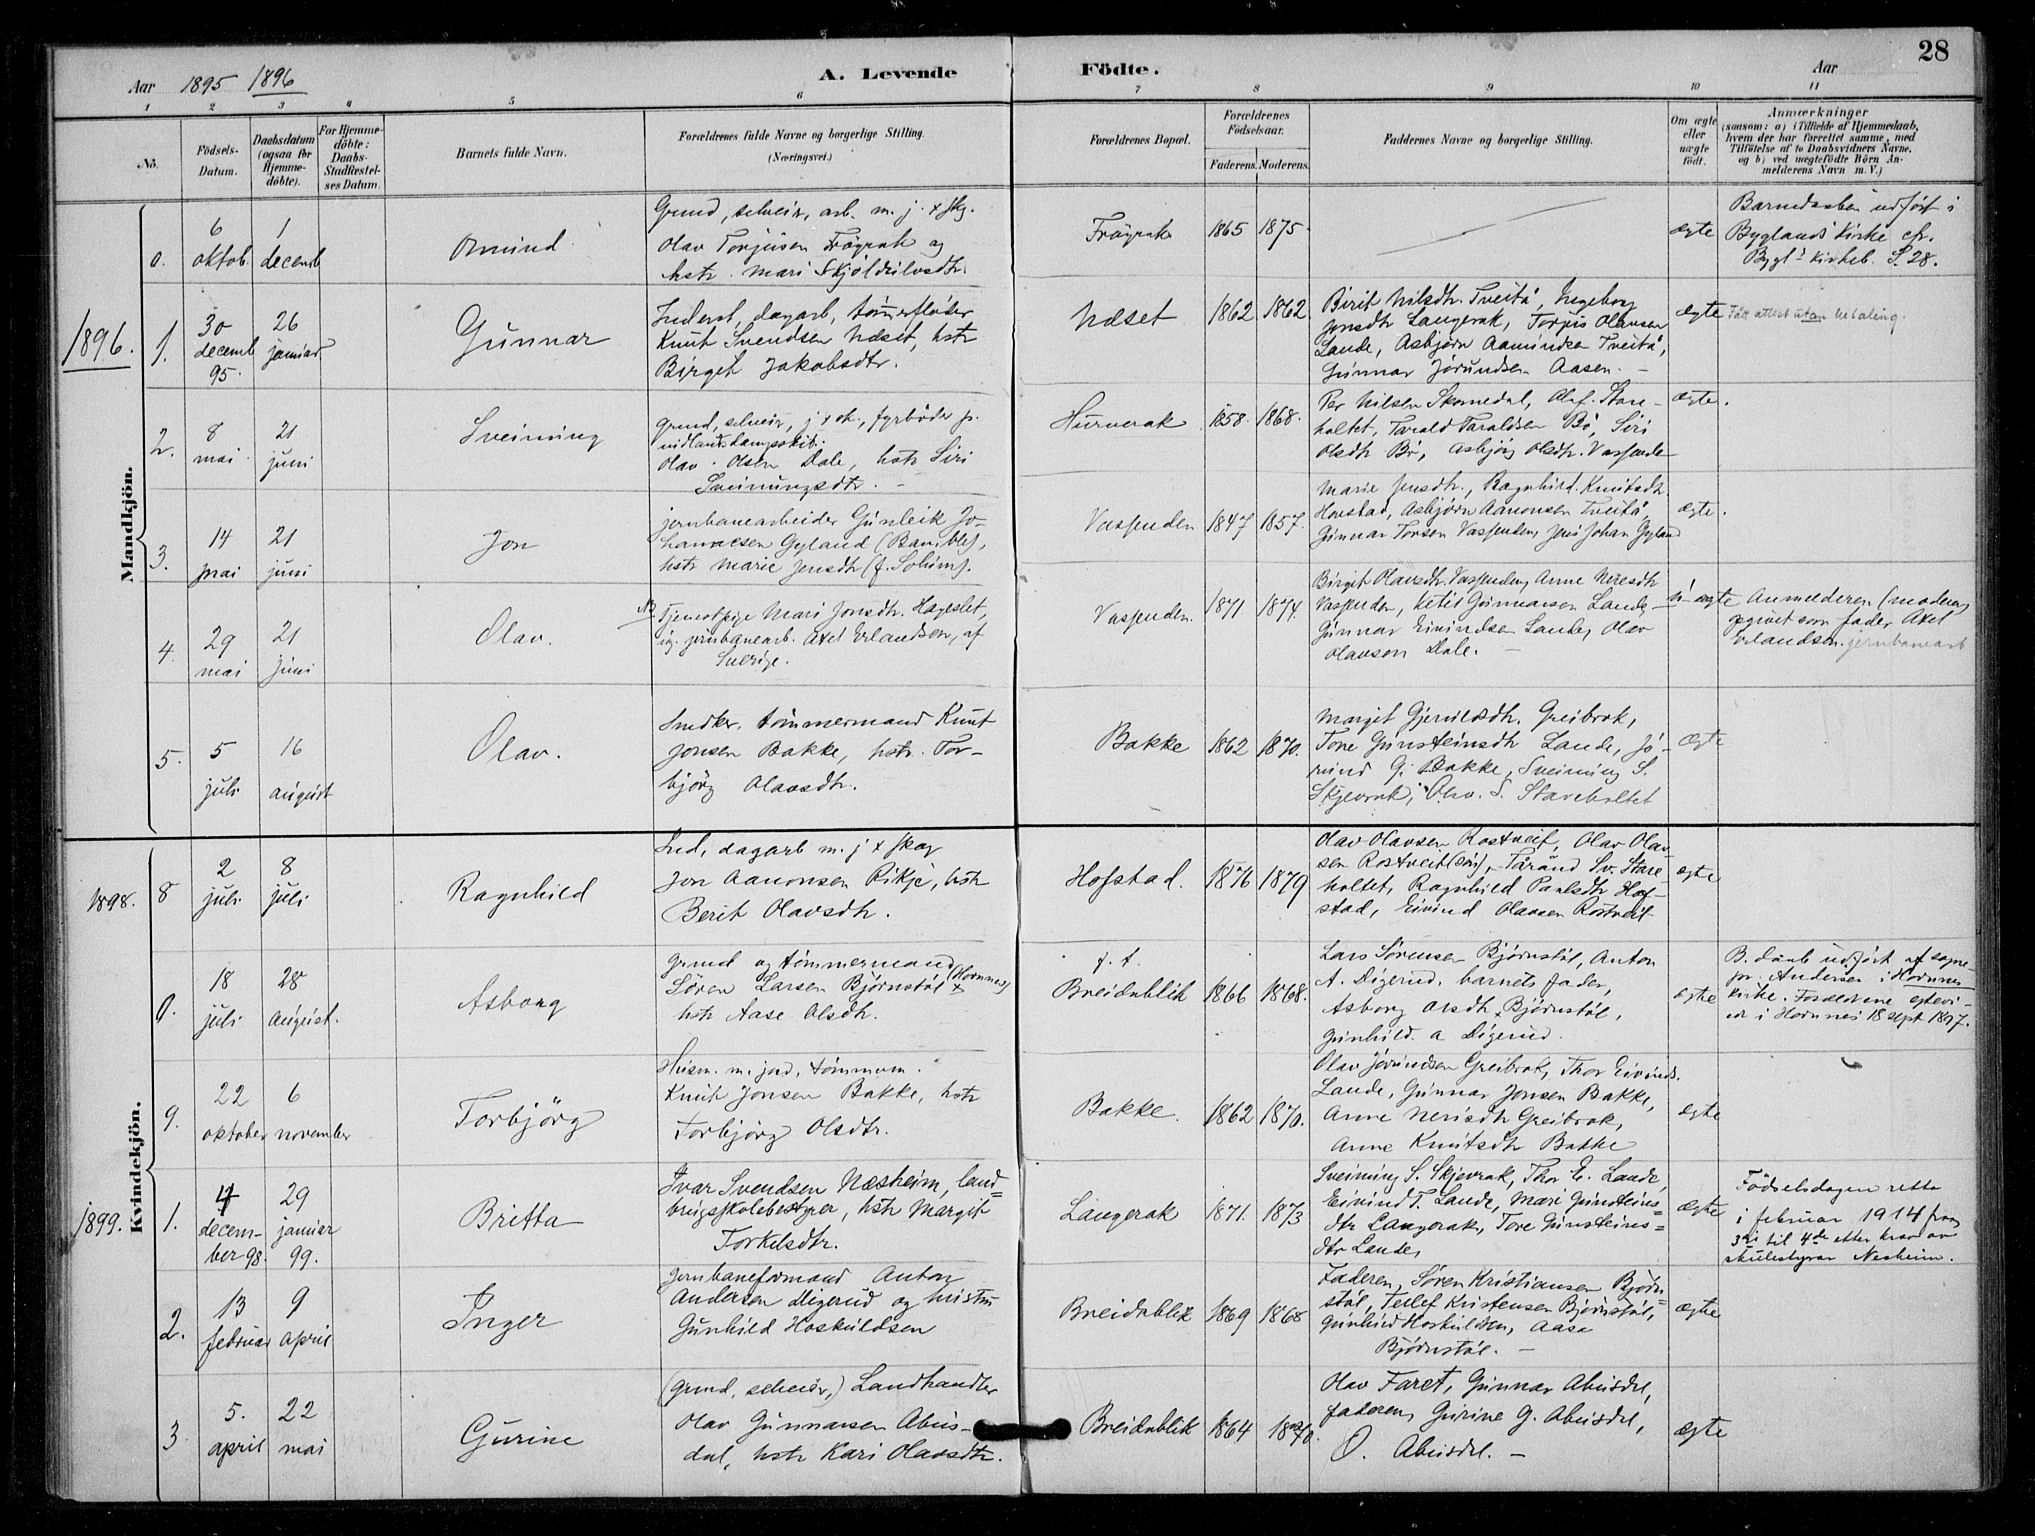 28
Aar 1895 1896
A. Levende Födte.
Aar
1 2 3 4 5 6 7 8 9 10 11
No.
Födsels-Datum.
Daabsdatum (ogsaa for Hjemme-döbte).
For Hjemme-döbte: Daabs-Stadfæstel-ses Datum.
Barnets fulde Navn.
Forældrenes fulde Navne og borgerlige Stilling. (Næringsvei.)
Forældrenes Bopæl.
Forældrenes Födselsaar.
Faderens. Moderens.
Faddernes Navne og borgerlige Stilling.
Om ægte eller uægte födt.
Anmærkninger
(saasom: a) i Tilfælde af Hjemmedaab, hvem der har forrettet samme, med Tilföielse af to Daabsvidners Navne, og b) ved uægtefödte Börn An-melderens Navn m. V.)
Mandkjön.
0. 6 oktob. 1 decemb
Omund
Grund, selveir, arb. m. j. + skg.
Olav Torjusen Frøyrak og
hstr. Mari Skjöldulvsdtr.
Frøyrak 1865 1875
ægte
Barnedaaben udført i
Byglands Kirke cfr.
Bygl's kirkeb. S. 28.
1896.
1. 30 decemb 95. 26 januar
Gunnar
Inderst, dagarb, tömmerfløder
Knut Svendsen Næset, hstr
Birgit Jakobsdtr.
Næset 1862 1862.
Birit Nilsdtr. Tveitå, Ingeborg
Jonsdtr Langerak, Torjus Olavsen
Lande, Asbjørn Aamundsen Tveitå,
Gunnar Jørundsen Aasen. —
ægte
Fått attest utan betaling.
2. 8 mai 21 juni
Sveinung
grund, selveir, j + sk., fyrböder p.
indlandsdampskib.
Olav Olsen Dale, hstr Siri
Sveinungsdtr. —
Hurverak 1858. 1868.
Per Nilsen Skomedal, Olaf Stare-
holtet, Tarald Taraldsen Bö, Siri
Olsdtr Bö, Asbjörg Olsdtr. Vassende
ægte.
3. 14 mai 21 juni
Jon
jernbanearbeider Gunleik Jo-
hannesen Gyland (Bamble),
hstr Marie Jensdtr
Vassenden 1847 1857.
Marie Jensdtr., Ragnhild Knutsdtr.
Hovstad, Asbjørn Aanonsen Tveitå,
Gunnar Torsen Vassenden, Jens Johan Gyland
ægte.
4. 29 mai 21 juni
Olav.
Tjenestpige Mari Jonsdtr. Hageslet,
ug. jernbanearb. Axel Erlandsen, af
Sverige.
Vassenden. 1871. 1874.
Birgit Olavsdtr. Vassenden, Anne Nerisdtr
Vassenden, Ketil Gunnarsen Lande
Gunnar Eivindsen Lande, Olav
Olavsen Dale. —
uægte
Anmelderen (moderen)
opgivet som fader Axel
Erlandsen. jernbanearb
5. 5 juli 16 august
Olav.
Snedker. tömmermand Knut
Jonsen Bakke, hstr. Tor-
björg Olavsdtr.
Bakke 1862 1870.
Margit Gjerulsdtr. Greibrok,
Tone Gunsteinsdtr Lande, Jö-
rund G. Bakke, Sveinung S.
Skjevrak, Olav. S. Stareholtet
ægte
Kvindekjön.
1898.
8 2 juli 8 juli
Ragnhild
Ind, dagarb m. j + skog
Jon Aanonsen Rikje, hstr
Berit Olavsdtr.
Hofstad. 1876 1879
Olav Olavsen Rostveit, Olav Olav-
sen Rostveit (sön), Tårånd Sv. Stare-
holtet, Ragnhild Paulsdtr Hof-
stad, Eivind Olavsen Rostveit
ægte
0. 18 juli 28 august.
Asborg
grund og tömmermand
Sören Larsen Björnstöl (Hornnes)
hstr Aase Olsdtr.
f. t.
Breidablik 1866 1868.
Lars Sörensen Bjørnstöl, Anton
A. Digerud, barnets fader,
Asborg Olsdtr. Björnstöl,
Gunhild A Digerud.
ægte
B. daab udført af sogne-
pr. Andersen i Hornnes
kirke. Forældrene egtevi-
et i Hornnes 18 sept 1897.
9. 22 oktober 6 november
Torbjörg
Husm. m. jord, tömmerm.
Knut Jonsen Bakke, hstr
Torbjörg Olsdtr.
Bakke. 1862 1870.
Olav Jørundsen Greibrok, Thor Eivinds.
Lande, Gunnar Jonsen Bakke,
Anne Nerisdtr Greibrok,
Anne Knutsdtr Bakke
ægte
1899.
1. 4 decem-ber 98. 29 januar 99.
Britta
Ivar Svendsen Næsheim, land=
brugsskolebestyrer, hstr Margit
Torkelsdtr.
Langerak 1871. 1873
Sveinung S. Skjevrak, Thor E. Lande,
Eivind T. Lande, Mari Gunsteins=
dtr Langerak, Tore Gunsteins=
dtr Lande,
ægte
Födselsdagen retta
i februar 1914 fraa
3di til 4de etter krav av
skulestyrar Nesheim.
2. 13 februar 9 april
Inger
Jernbaneformand Anton
Andersen Digerud og hustru
Gunhild Hoskuldsen
Breidablik 1869 1868
Faderen, Søren Kristiansen Bjørn=
stöl, Tellef Kristensen Bjørnstöl,
Gunhild Hoskuldsen, Aasa
Björnstöl. —
ægte
3 5. april 22 mai
Gurine
(grund, selveier,) Landhandler
Olav Gunnarsen Abus-
dal, hstr Kari Olavsdtr.
Breidablik 1864 1870.
Olav Faret, Gunnar Abusdal,
faderen, Gurine G. Abusdal,
O. Abusdal. —
ægte